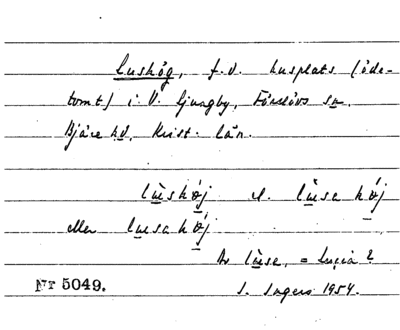 Luskög, f.d. husplats (öde-
tomt) i V. Ljungby, Förslövs sn.
Bjäre hd, Krist. län.
lu̲skø̲j el. lu̲sa kø̲j
eller lu̲sa kø̲j
Av lu̲se, = Lucia?
Nr 5049.
S. Ingers 1954.